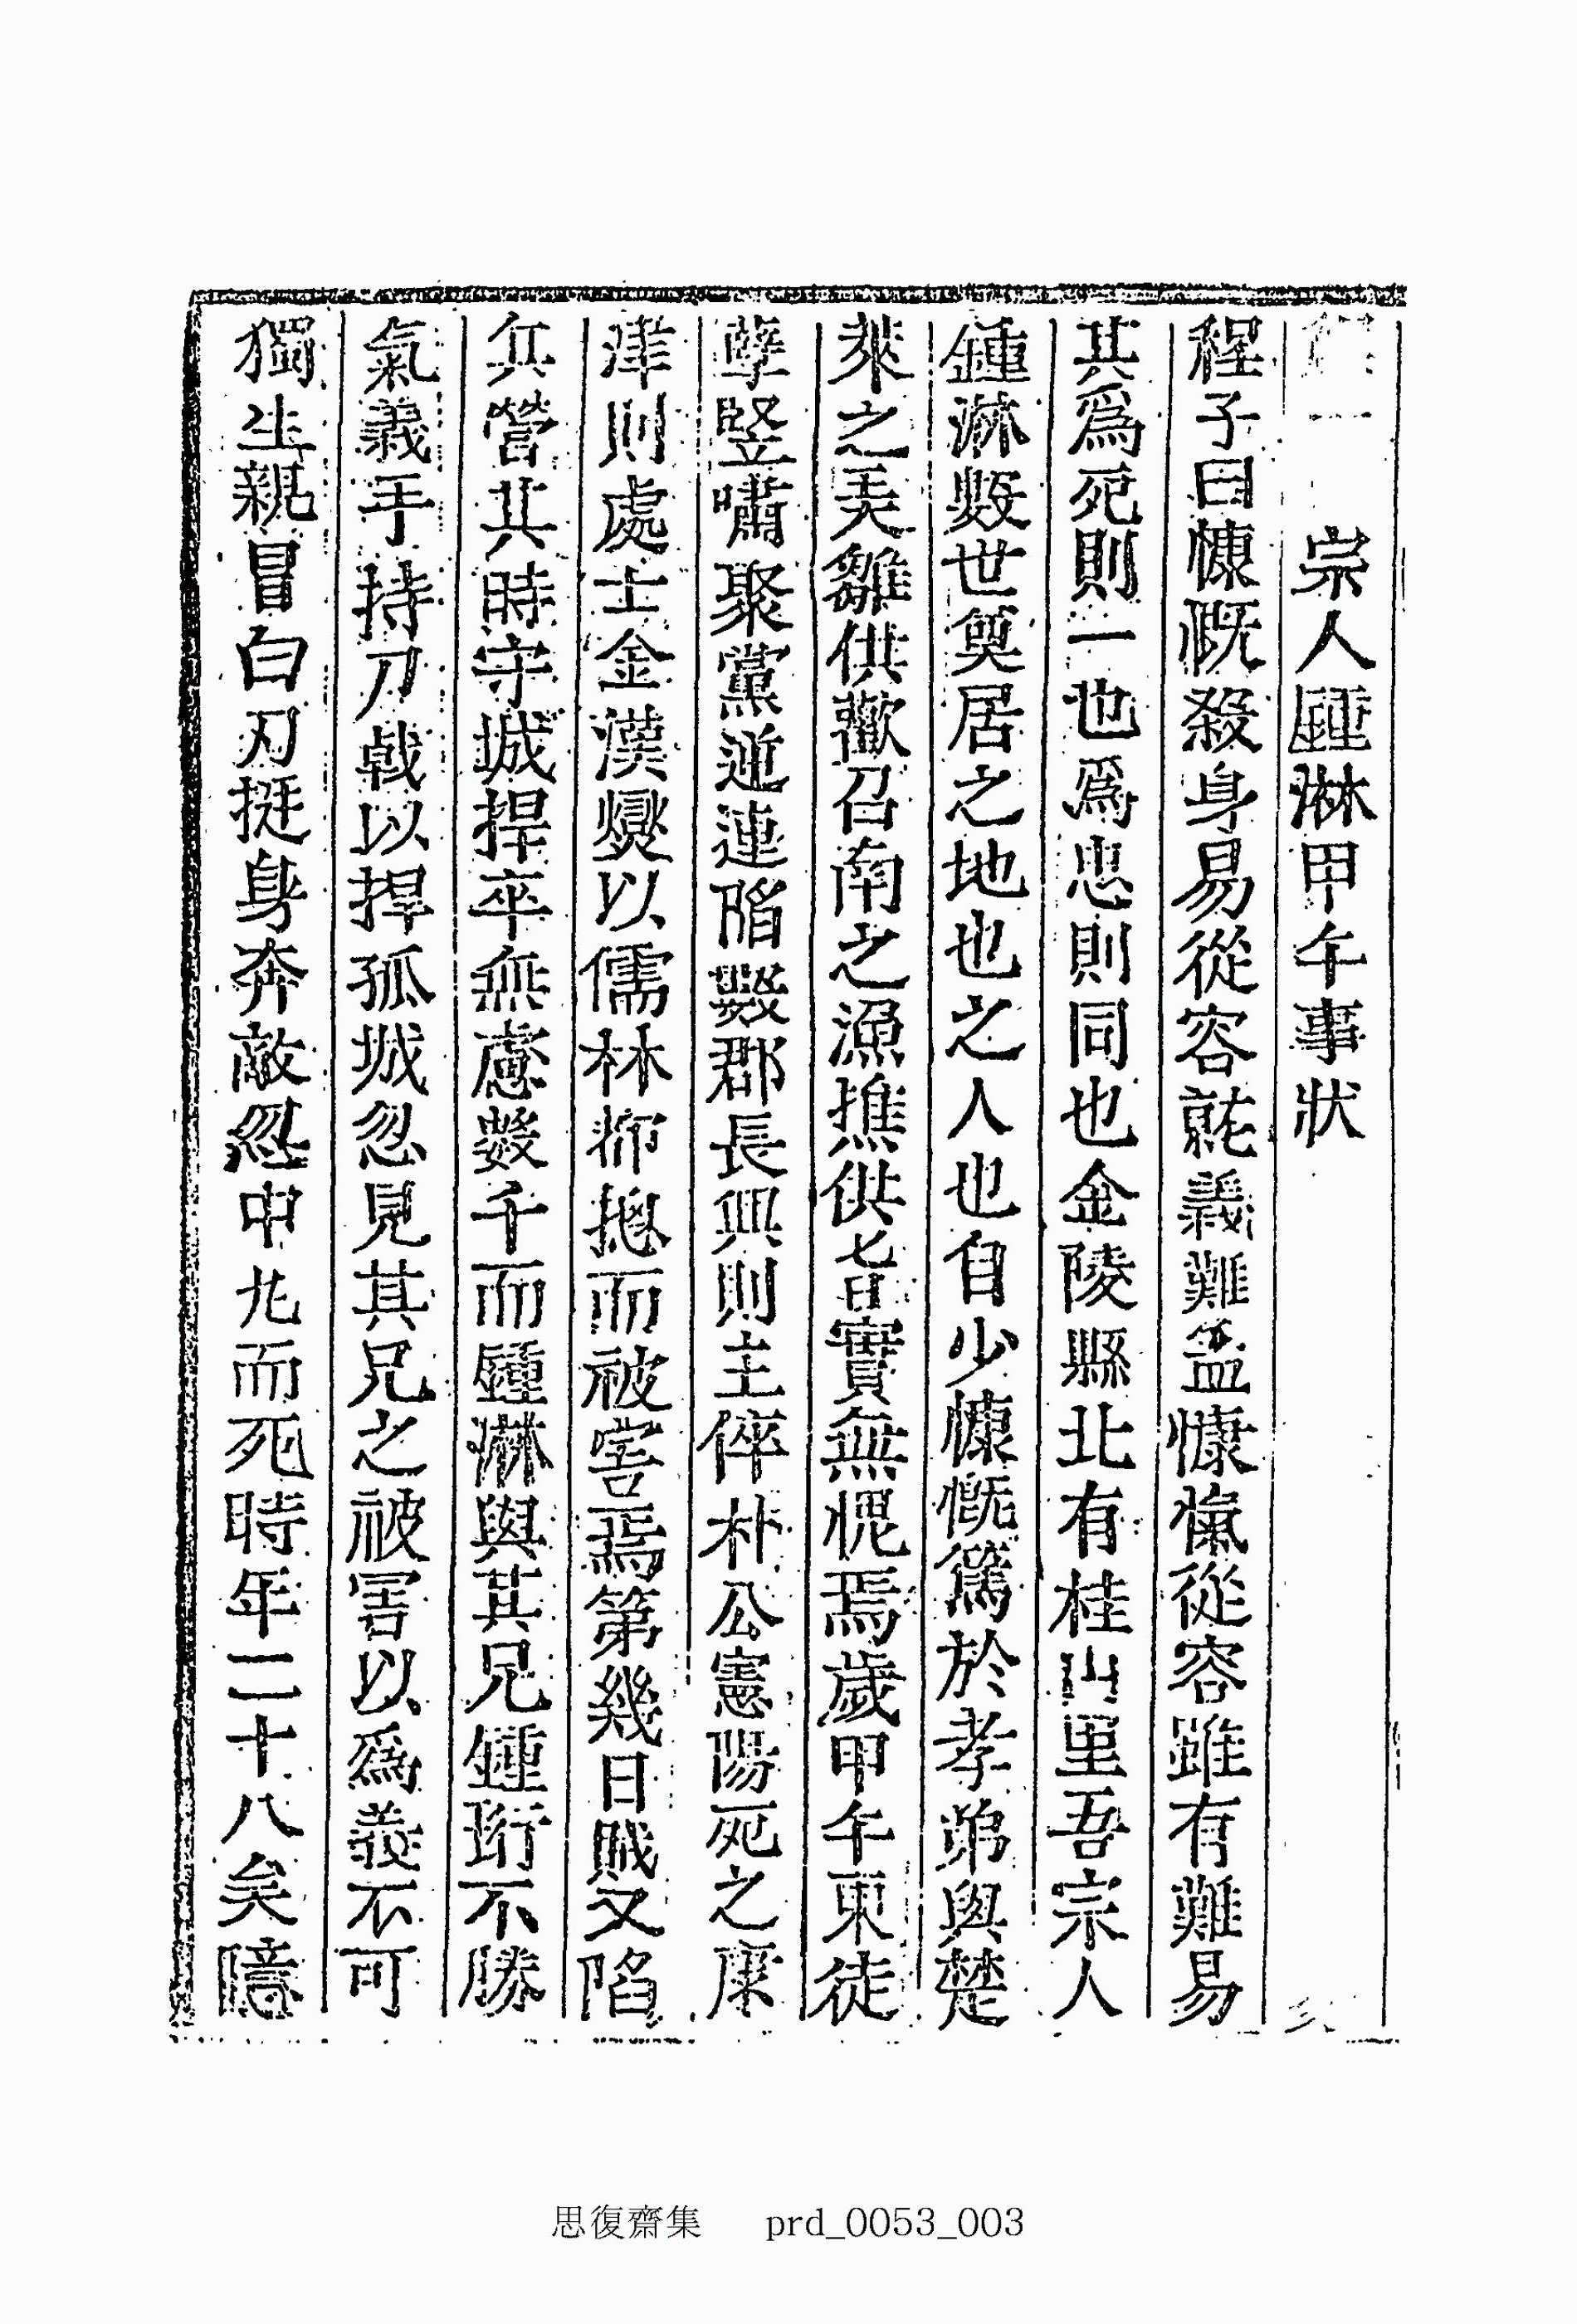 宗人鍾淋甲午事狀
程子曰慷慨殺身易從容就義難盖慷慨從容雖有難易
其爲死則一也爲忠則同也金陵縣北有桂山里吾宗人
鍾淋数世奠居之地也之人也自少慷慨篤於孝弟與楚
萊之美雛供歡召南之漁樵供旨實無愧焉歲甲午東徒
孽竪嘯聚黨逆連陷數郡長興則主倅朴公憲陽死之康
津則處士金漢爕以儒林將摠而被害焉第幾日賊又陷
兵營其時守城捍卒無慮數千而鍾淋與其兄鍾珩不勝
氣義手持刀戟以捍孤城忽見其兄之被害以爲義不可
獨生親冒白刃挺身奔敵忽中丸而死時年二十八矣噫
思復齋集 prd_0053_003